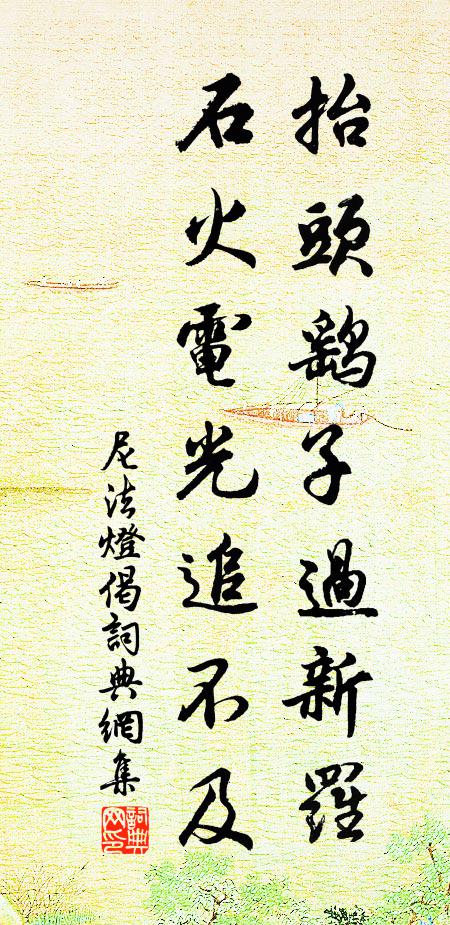 抬頭鷂子過新羅
石火電光追不及
尼法燈偈詞典網集
詞典网印